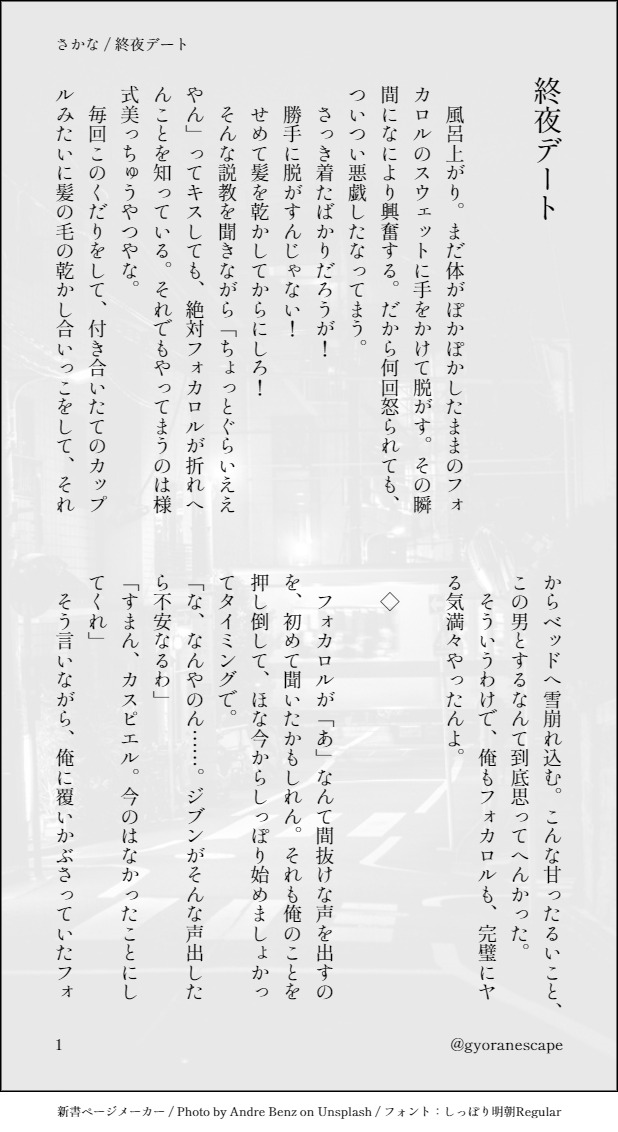 さかな / 終夜デート
終夜デート
　風呂上がり。まだ体がぽかぽかしたままのフォ
カロルのスウェットに手をかけて脱がす。その瞬
間になにより興奮する。だから何回怒られても、
ついつい悪戯したなってまう。
　さっき着たばかりだろうが！
　勝手に脱がすんじゃない！
　せめて髪を乾かしてからにしろ！
　そんな説教を聞きながら「ちょっとぐらいええ
やん」ってキスしても、絶対フォカロルが折れへ
んことを知っている。それでもやってまうのは様
式美っちゅうやつやな。
　毎回このくだりをして、付き合いたてのカップ
ルみたいに髪の毛の乾かし合いっこをして、それ
からベッドへ雪崩れ込む。こんな甘ったるいこと、
この男とするなんて到底思ってへんかった。
　そういうわけで、俺もフォカロルも、完璧にヤ
る気満々やったんよ。
◇
　フォカロルが「あ」なんて間抜けな声を出すの
を、初めて聞いたかもしれん。それも俺のことを
押し倒して、ほな今からしっぽり始めましょかっ
てタイミングで。
「な、なんやのん……。ジブンがそんな声出した
ら不安なるわ」
「すまん、カスピエル。今のはなかったことにし
てくれ」
　そう言いながら、俺に覆いかぶさっていたフォ
1
@gyoranescape
新書ページメーカー / Photo by Andre Benz on Unsplash / フォント：しっぽり明朝Regular